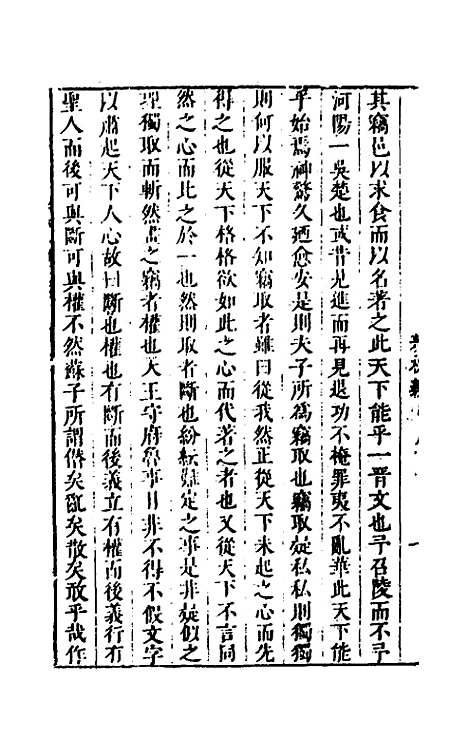 其竊邑以求食而以名著之此天下能乎一晋文也予召陵而不予
河陽一吳楚也或昔見進而再見退功不掩罪夷不亂華此天下能
乎始焉神驚久廼愈安是則夫子所爲竊取也竊取疑私私則獨獨
則何以服天下不知竊取者雖曰從我然正從天下未起之心而先
得之也從天下格格欲如此之心而代著之者也又從天下不言同
然之心而比之於一也然則取者斷也紛紜難定之事是非疑似之
理獨取而斬然畫之竊者權也天王守府魯事日非不得不假文字
以肅起天下人心故曰斷也權也有斷而後義立有權而後義行有
聖人而後可與斷可與權不然蘇子所謂僭矣亂矣散矣敢乎哉作